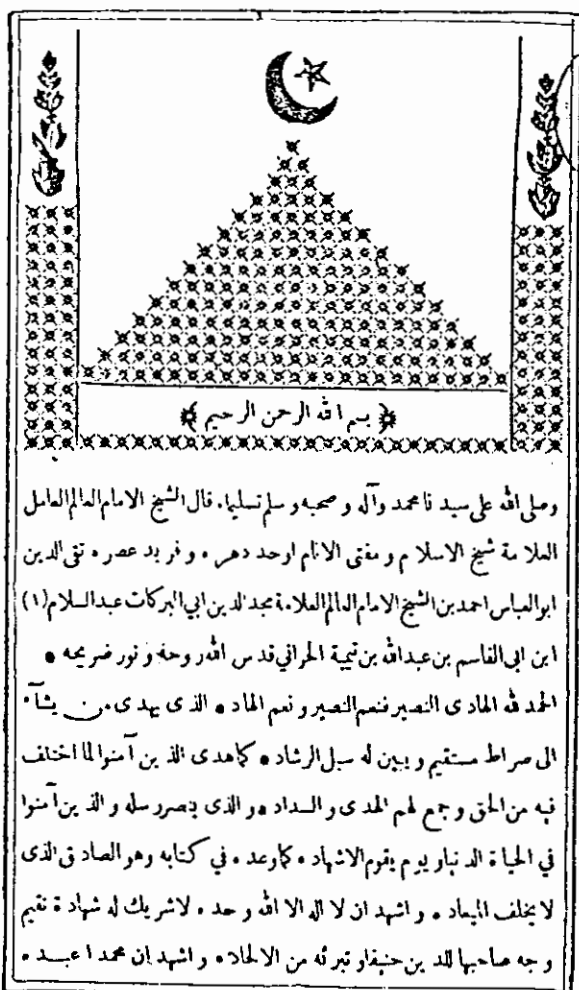 بسم الله الرحمن الرحيم
وصلى الله على سيدنا محمد وآله وصحبه وسلم تسليما. قال الشيخ الامام العالم العامل
العلامة شيخ الاسلام ومفتى الانام اوحد دهره وفريد عصره تقى الدين
ابوالعباس احمد بن الشيخ الامام العالم العلامة مجد الدين ابي البركات عبد السلام (١)
ابن ابى القاسم بن عبدالله بن تيمية الحراني قدس الله روحه ونور ضريحه •
الحمد لله الهادى النصير فنعم النصير ونعم الهاد • الذى يهدى من يشآء
الى صراط مستقيم ويبين له سبل الرشاد • كما هدى الذين آمنوا لما اختلف
فيه من الحق وجمع لهم الهدى والسداد • والذى ينصر رسله والذين آمنوا
في الحياة الدنيا ويوم يقوم الاشهاد • كما وعده في كتابه وهو الصادق الذى
لا يخلف الميعاد • واشهد ان لا اله الا الله وحده لاشريك له شهادة تقيم
وجه صاحبها للدين حنيفا وتبرئه من الالحاد • واشهد ان محمدا عبده